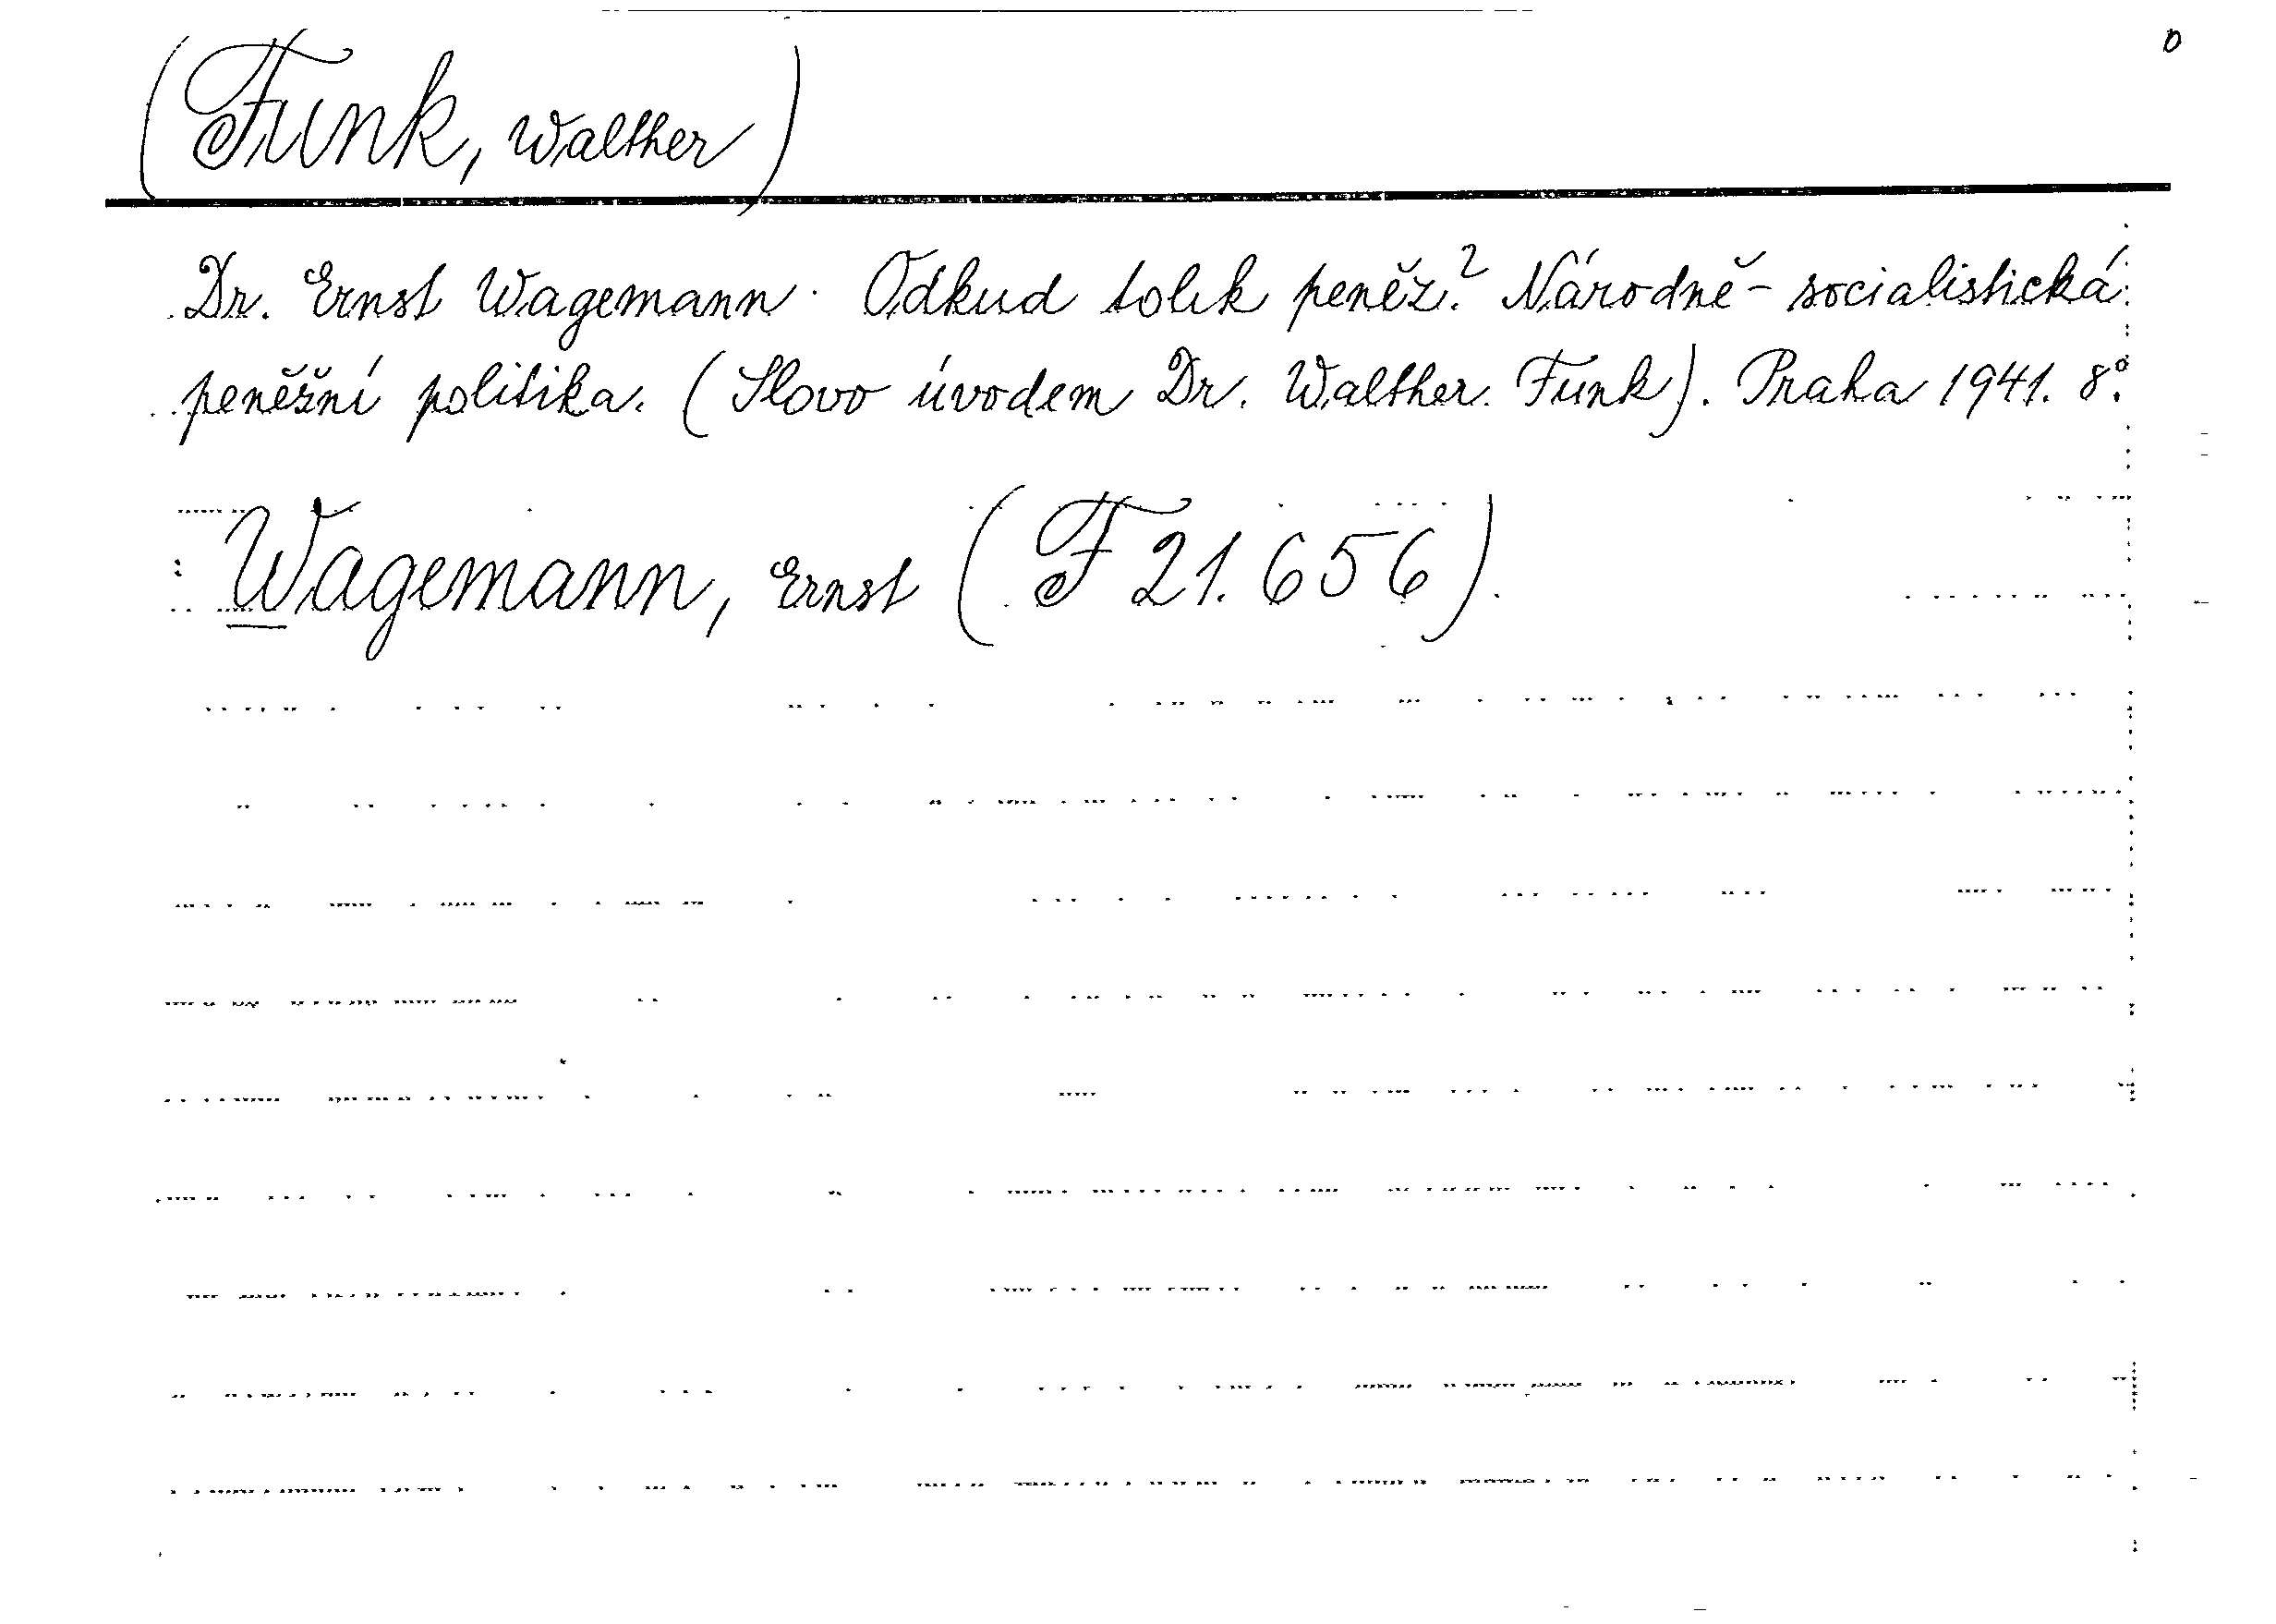 0
(Funk, Walther)
Dr. Ernst Wagemann. Odkud tolik peněz? Národně-socialistická
peněžní politika. (Slovo úvodem Dr. Walther Funk). Praha 1941. 8°.
Wagemann, Ernst (F 21.656).